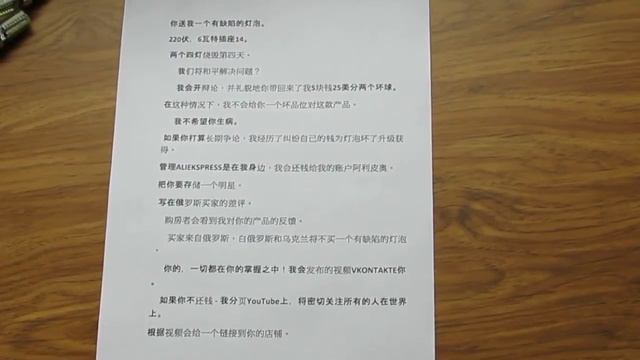 你送我一个有缺陷的灯泡。
220伏，6瓦特插座14。
两个四灯烧毁第四天。
我们将和平解决问题？
我会开辩论，并礼貌地你带回来了我5块钱25美分两个环球。
在这种情况下，我不会给你一个坏品位对这款产品。
我不希望你生病。
如果你打算长期争论，我经历了纠纷自己的钱为灯泡坏了升级获
得。
管理ALIEKSPRESS是在我身边，我会还钱给我的账户阿利皮奥。
把你要存储一个明星。
写在俄罗斯买家的差评。
购房者会看到我对你的产品的反馈。
买家来自俄罗斯，白俄罗斯和乌克兰将不买一个有缺陷的灯泡
。
你的，一切都在你的掌握之中！我会发布的视频VKONTAKTE你
。
如果你不还钱 - 我分页YouTube上，将密切关注所有的人在世界
上。
根据视频会给一个链接到你的店铺。